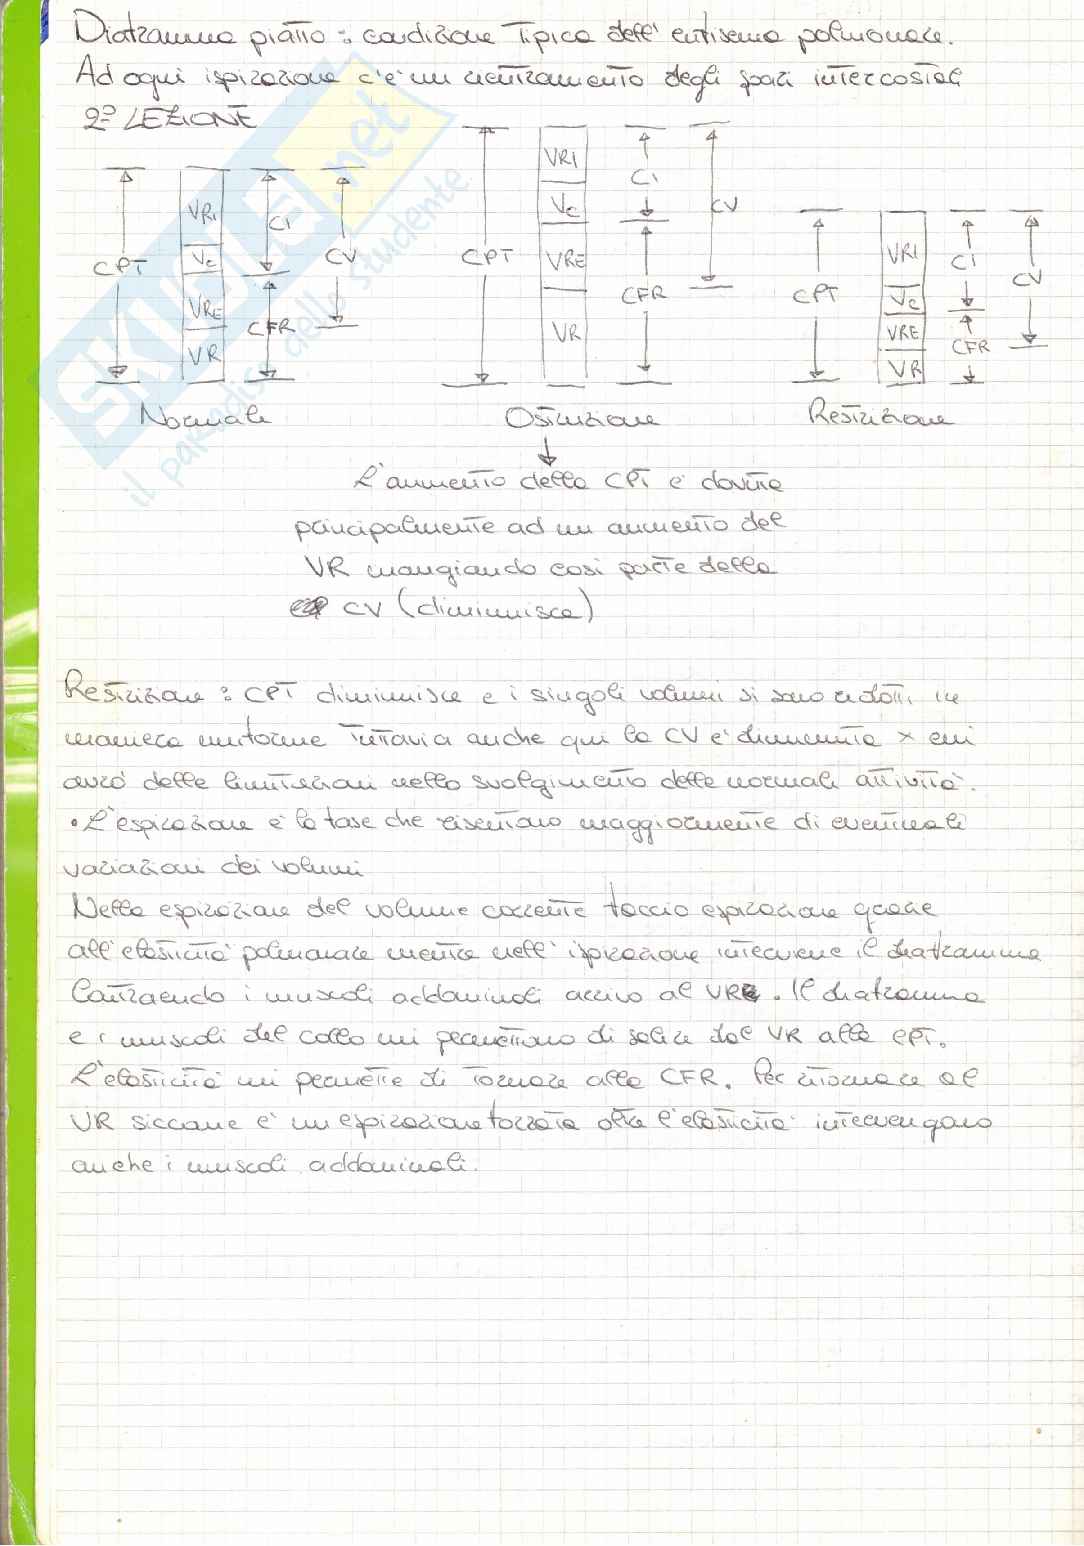 Diaframma piatto : condizione tipica dell' enfisema polmonare.
Ad ogni ispirazione c'è un rientramento degli spazi intercostali
2ª LEZIONE
CPT VRI Vc VRE VR CI CFR CV
Normale
CPT VRI Vc VRE VR CI CFR CV
Ostruzione
CPT VRI Vc VRE VR CI CFR CV
Restrizione
L'aumento della CPT è dovuta
principalmente ad un aumento del
VR mangiando così parte della
CV (diminuisce)
Restrizione : CPT diminuisce e i singoli volumi si sono ridotti in
maniera uniforme tuttavia anche qui la CV è diminuita x cui
avrò delle limitazioni nello svolgimento delle normali attività.
• L'espirazione è la fase che risentono maggiormente di eventuali
variazioni dei volumi
Nella espirazione del volume corrente faccio espirazione grazie
all' elasticità polmonare mentre nell' ispirazione interviene il diaframma
Contraendo i muscoli addominali arrivo al VR. Il diaframma
e i muscoli del collo mi permettono di salire dal VR alla CPT.
L'elasticità mi permette di tornare alla CFR. Per ritornare al
VR siccome è un espirazione forzata oltre l'elasticità intervengono
anche i muscoli addominali.
SKUOLA.net
il paradiso dello studente